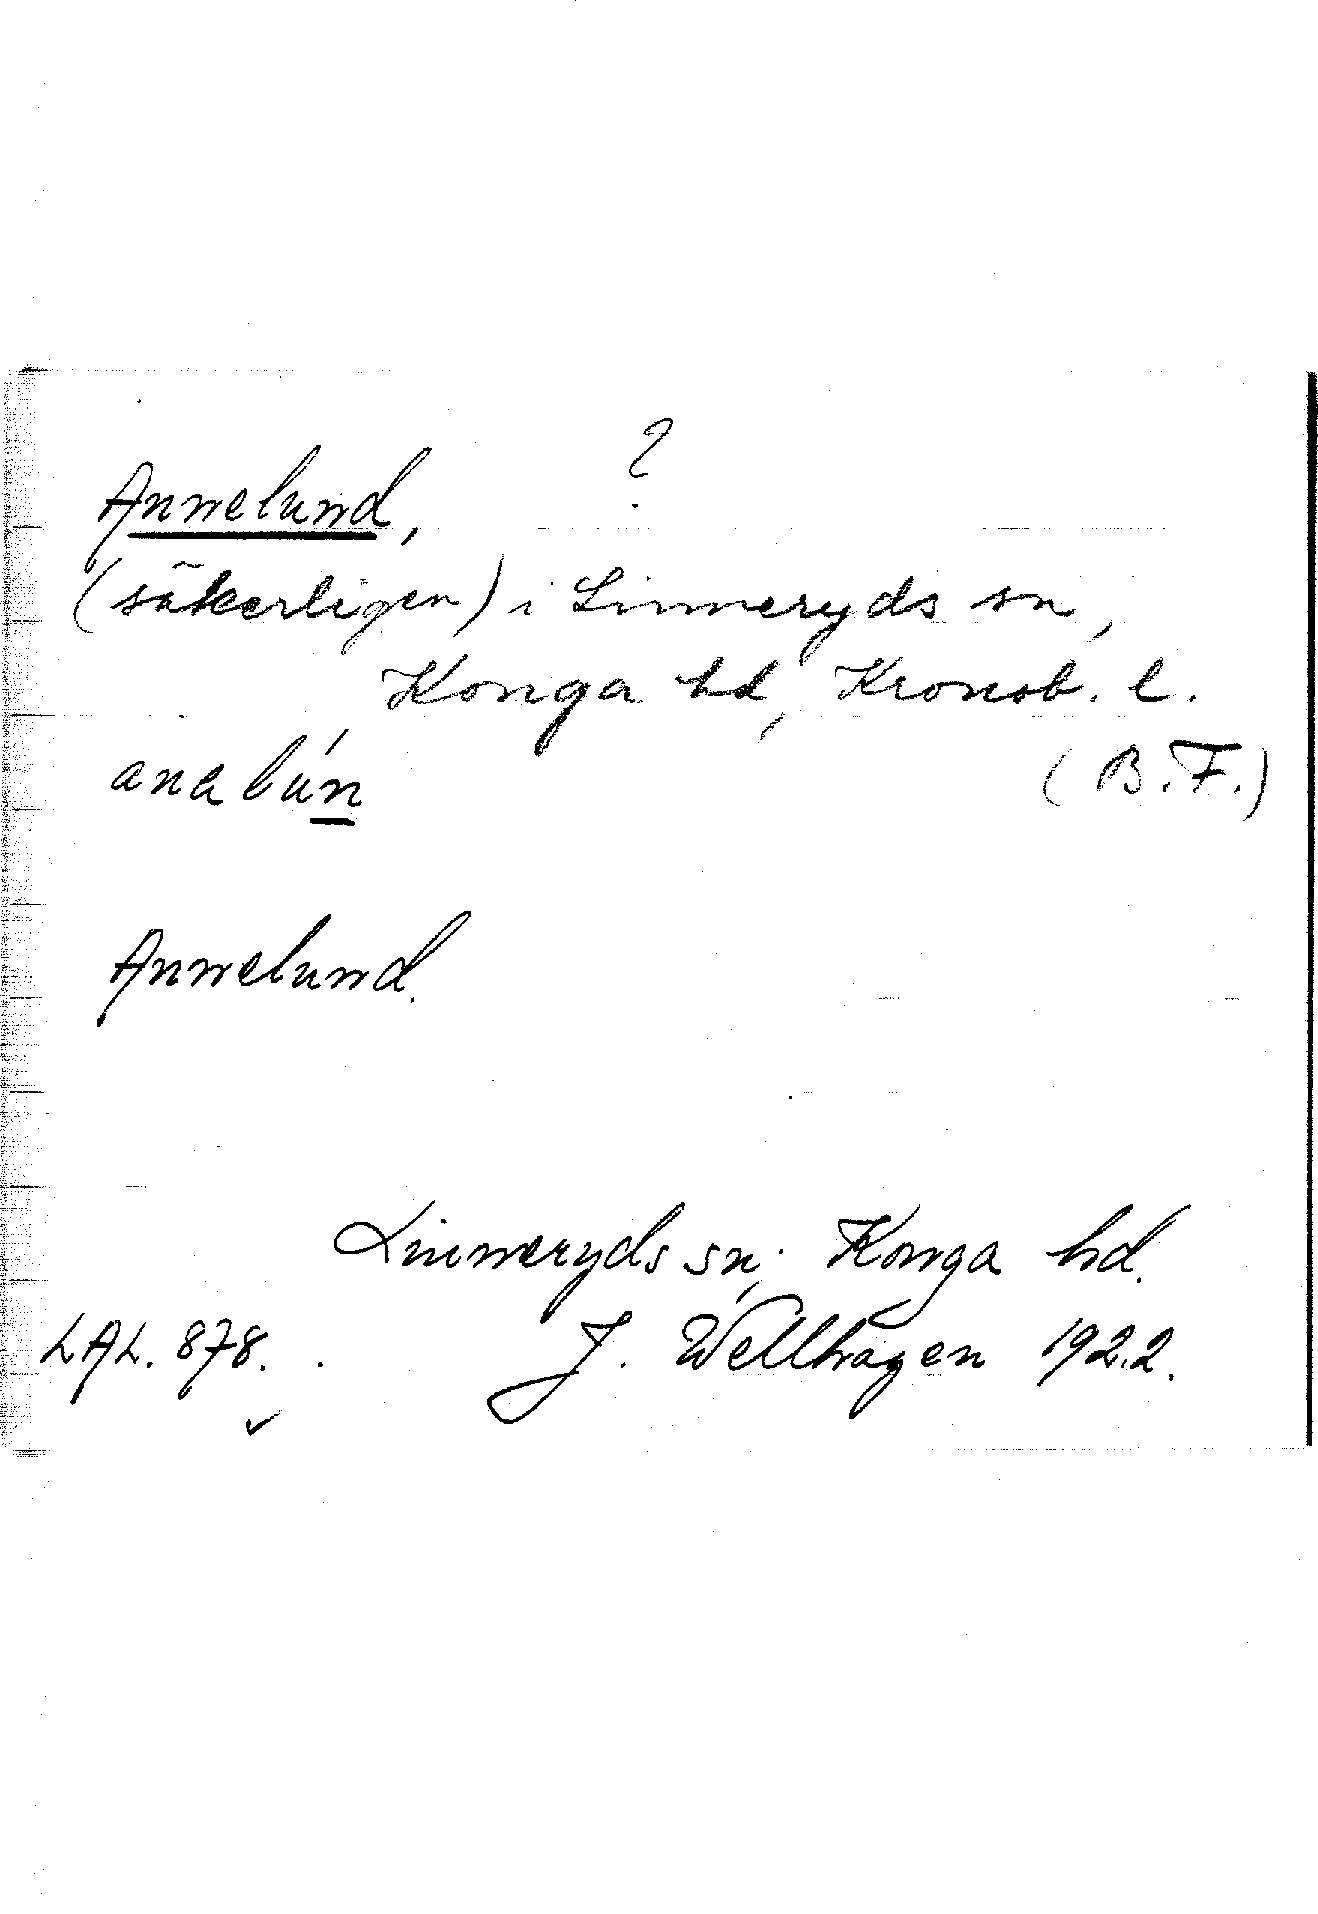 Annelund, ?
(säkerligen) i Linneryds sn,
Konga hd, Kronob. l.
analún (B.F.)
Annelund.
Linneryds sn; Konga hd.
LAL. 878. J. Wellhagen 1922.